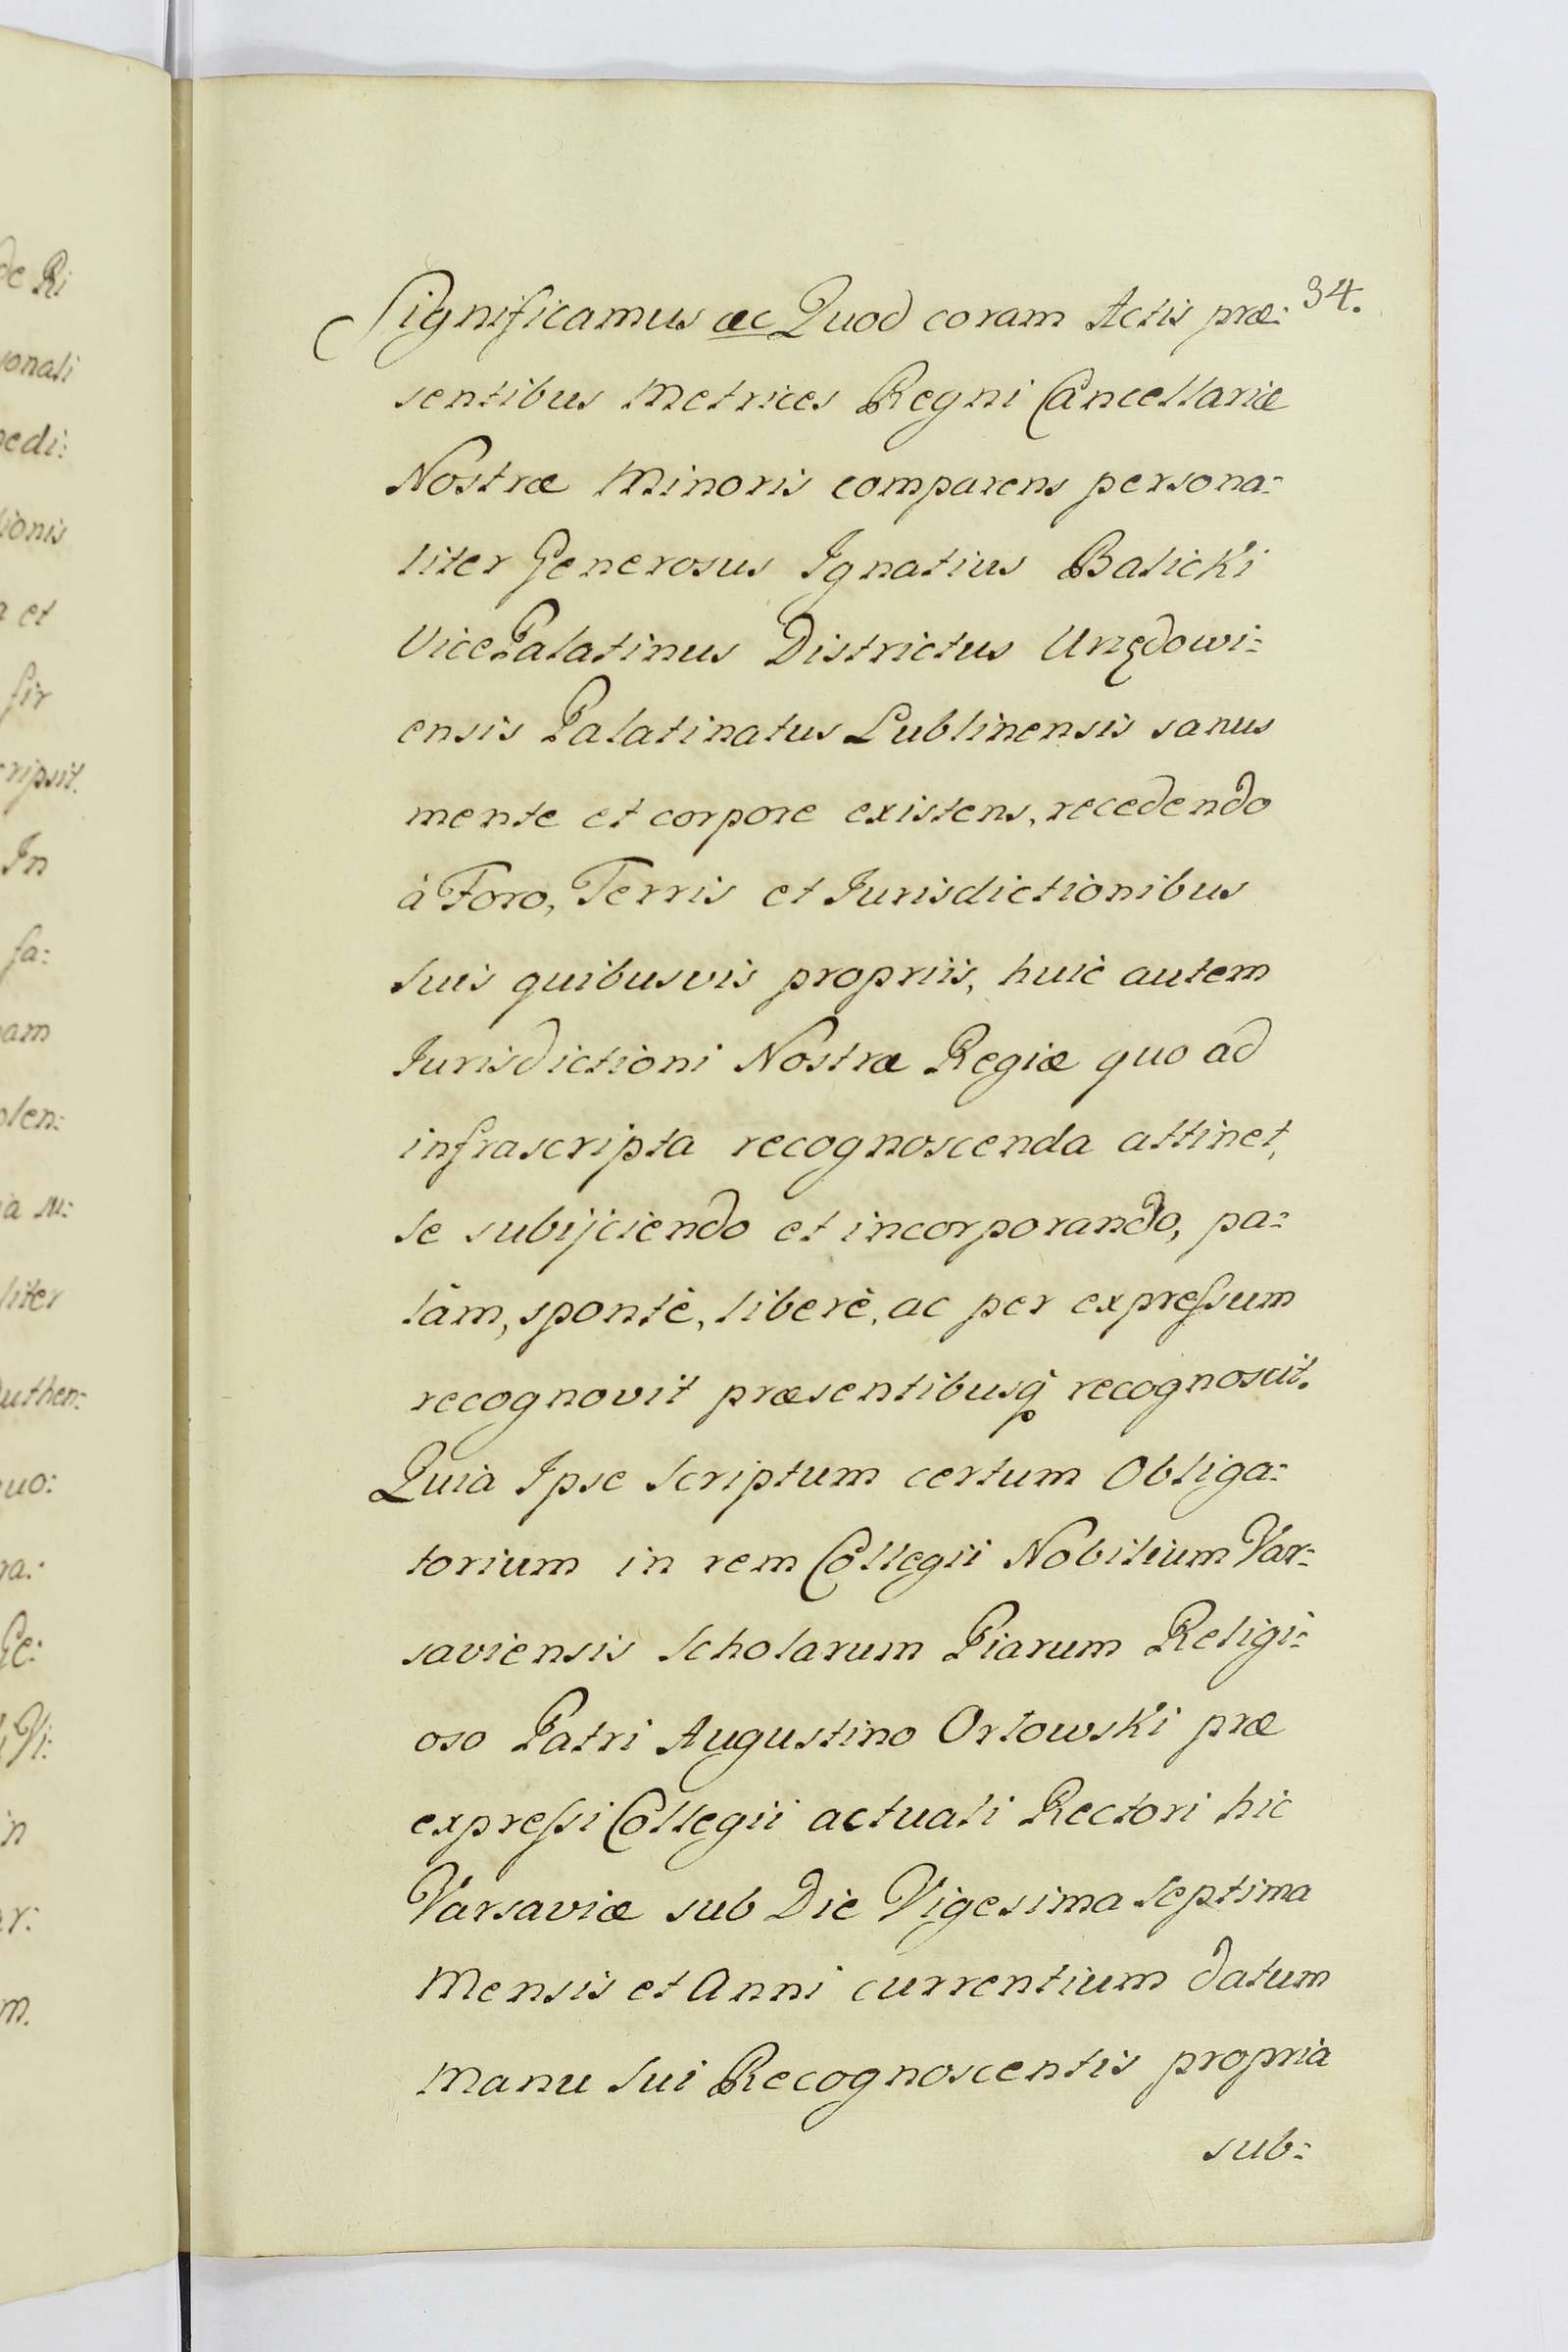 de Ri
sonali
pedi:
tionis
a et
fir
cripsit.
In
fa:
nam
olen:
ia su:
liter
Authen:
quo:
ra:
Ge:
Vi:
in
ar:
m.
34.
Significamus &c Quod coram Actis præ:
sentibus Metrices Regni Cancellariæ
Nostræ Minoris comparens persona:
liter Generosus Ignatius Balicki
VicePalatinus Districtus Urzędowi:
ensis Palatinatus Lublinensis sanus
mente et corpore existens, recedendo
à Foro, Terris et Jurisdictionibus
suis quibusvis propriis, huic autem
Jurisdictioni Nostræ Regiæ quo ad
infrascripta recognoscenda attinet,
se subijciendo et incorporando, pa:
lâm, spontè, liberè, ac per expreſsum
recognovit præsentibusq́ recognoscit.
Quia Ipse Scriptum certum Obliga:
torium in rem Collegii Nobilium Var:
saviensis Scholarum Piarum Religi:
oso Patri Augustino Orłowski præ
expreſsi Collegii actuali Rectori hic
Varsaviæ sub Die Vigesima Septima
Mensis et Anni currentium datum
Manu Sui Recognoscentis propria
sub: